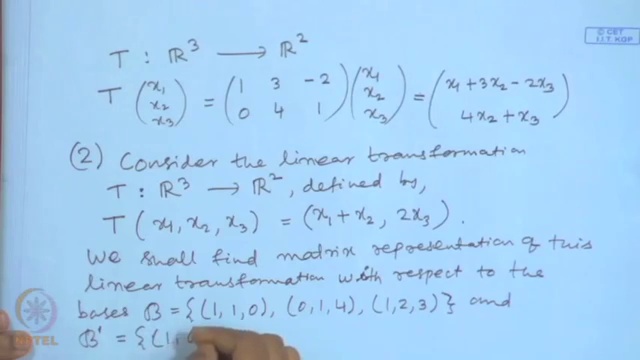 © CET
I.I.T. KGP
T : ℝ³ ⟶ ℝ²
T (x₁ x₂ x₃) = (1 3 -2 0 4 1) (x₁ x₂ x₃) = (x₁ + 3x₂ - 2x₃ 4x₂ + x₃)
(2) Consider the linear transformation
T : ℝ³ ⟶ ℝ², defined by,
T (x₁, x₂, x₃) = (x₁ + x₂, 2x₃).
We shall find matrix representation of this
linear transformation with respect to the
bases B = {(1, 1, 0), (0, 1, 4), (1, 2, 3)} and
B' = {(1, 0
NPTEL